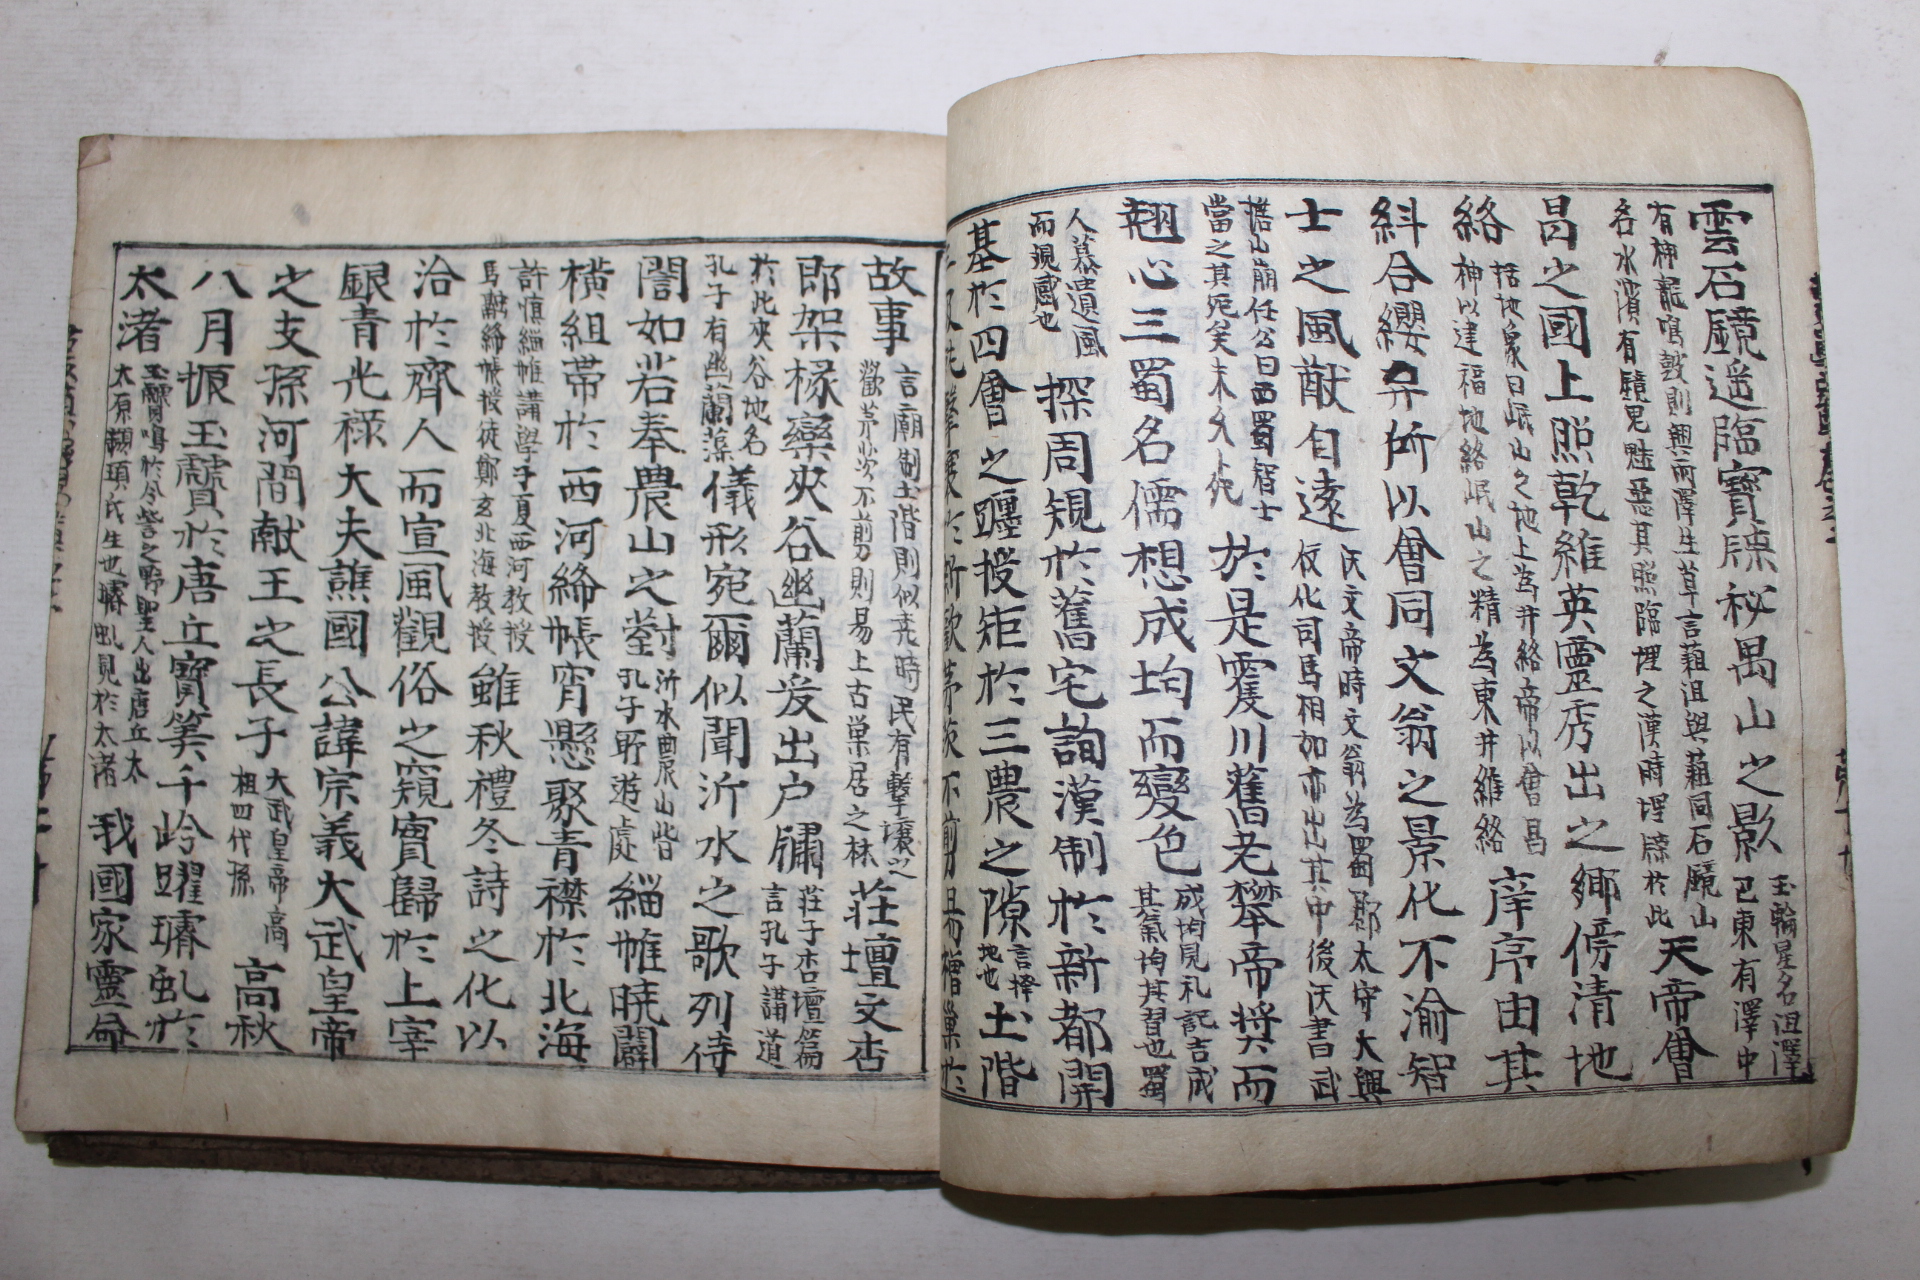 雲石鏡遥臨寶牘秘禺山之影玉輪星名沮澤巴東有澤中
有神龍鳴鼓則興雨澤生草言菹沮與菹同石鏡山名水濱有鏡鬼魅惡其照臨埋之漢時埋牘於此天帝會
昌之國上照乾維英靈秀出之鄉傍清地
絡括地象曰岷山之地上為井絡帝以會昌神以建福地絡岷山之精為東井維絡庠序由其
糾合纓弁所以會同文翁之景化不渝智
士之風猷自遠汉文帝時文翁為蜀郡太守大興仪化司馬相如亦出其中後汉書武
擔山崩任公曰西蜀智士當之其死矣未久卜死於是靈川舊老攀帝奬而
翹心三蜀名儒想成均而變色成均見礼記吉成其氣均其習也蜀
人慕遺風而覌感也探周規於舊宅詢漢制於新都開
基於四會之躔授矩於三農之隙言擇地也土階
故事言廟制土階則似尭時民有擊壤之歡茅茨不前則易上古巢居之林莊壇文杏
郎架椽欒夾谷幽蘭爰出户牗莊子杏壇篇言孔子講道
於此夾谷地名孔子有幽蘭藻儀形宛爾似聞沂水之歌列侍
誾如若奉農山之對沂水曲農山皆孔子所遊處緇帷曉闢
横組帯於西河絳帳宵懸聚青襟於北海
許慎緇帷講學子夏西河教授馬融絳帳授徒鄭玄北海教授雖秋禮冬詩之化以
洽於齊人而宣風觀俗之窺實歸於上宰
銀青光禄大夫譙國公諱宗義大武皇帝
之支孫河間献王之長子大武皇帝高祖四代孫高秋
八月振玉贙於唐丘寶筭千岭躍璿虬於
太渚玉贙鳴於令誉之野聖人出唐丘太太原顓頊氏生也璿虬見於太渚我國家靈命